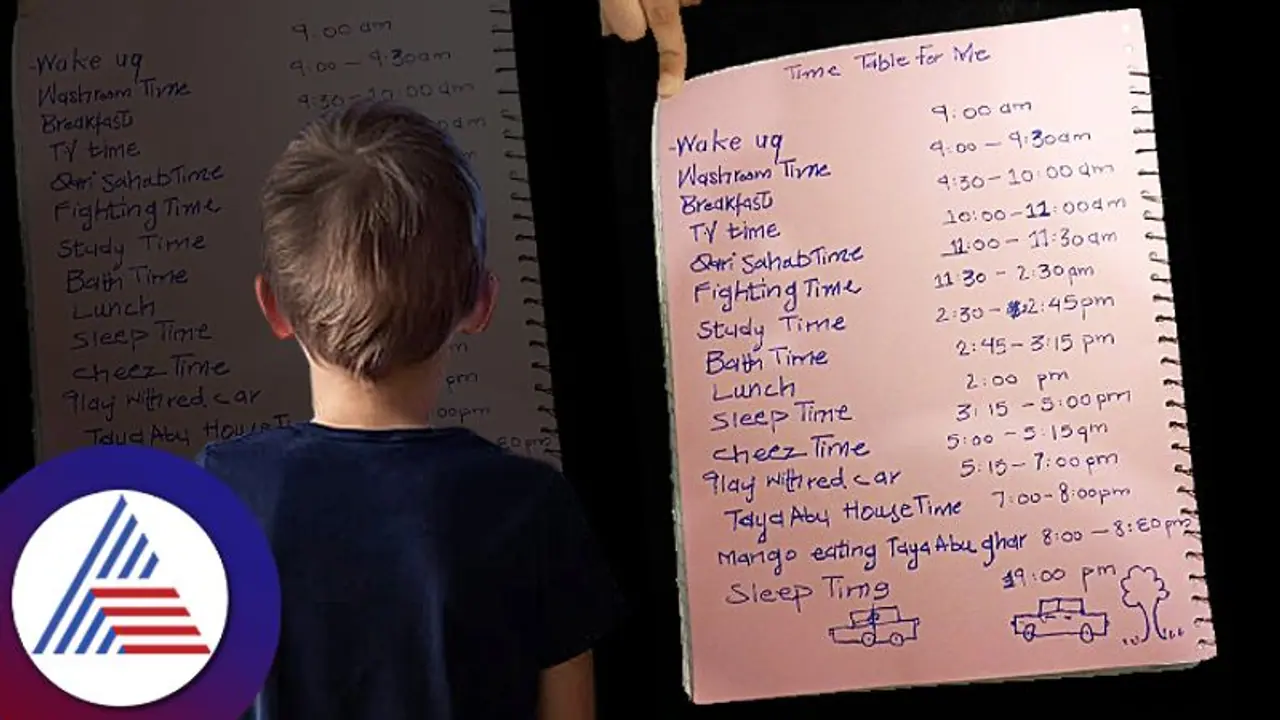 9:00 am
-Wake uq 9:00 - 9:30am
Washroom Time 9:30-10:00am
Breakfast
TV time
Qari Sahab Time
Fighting Time
Study Time
Bath Time
Lunch
Sleep Time
cheez Time
qlay with red car
Taya Abu House
Time Table for Me
-Wake uq 9:00 am
Washroom Time 9:00 - 9:30am
Breakfast 9:30-10:00am
TV time 10:00-11:00am
Qari Sahab Time 11:00 - 11:30am
Fighting Time 11:30 - 2:30qm
Study Time 2:30 - 2:45pm
Bath Time 2:45-3:15 pm
Lunch 2:00 pm
Sleep Time 3:15 - 5:00pm
cheez Time 5:00 - 5:15qm
qlay with red car 5:15-7:00pm
Taya Abu House Time 7:00-8:00pm
Mango eating Taya Abu ghar 8:00 - 8:30pm
Sleep Time 9:00 pm